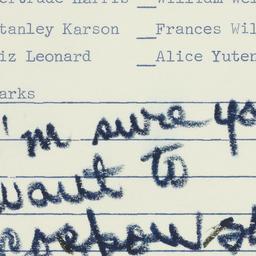 ertrude Harris __William Wei
tanley Karson __Frances Wil
iz Leonard __Alice Yuten
arks
'm sure yo
want to